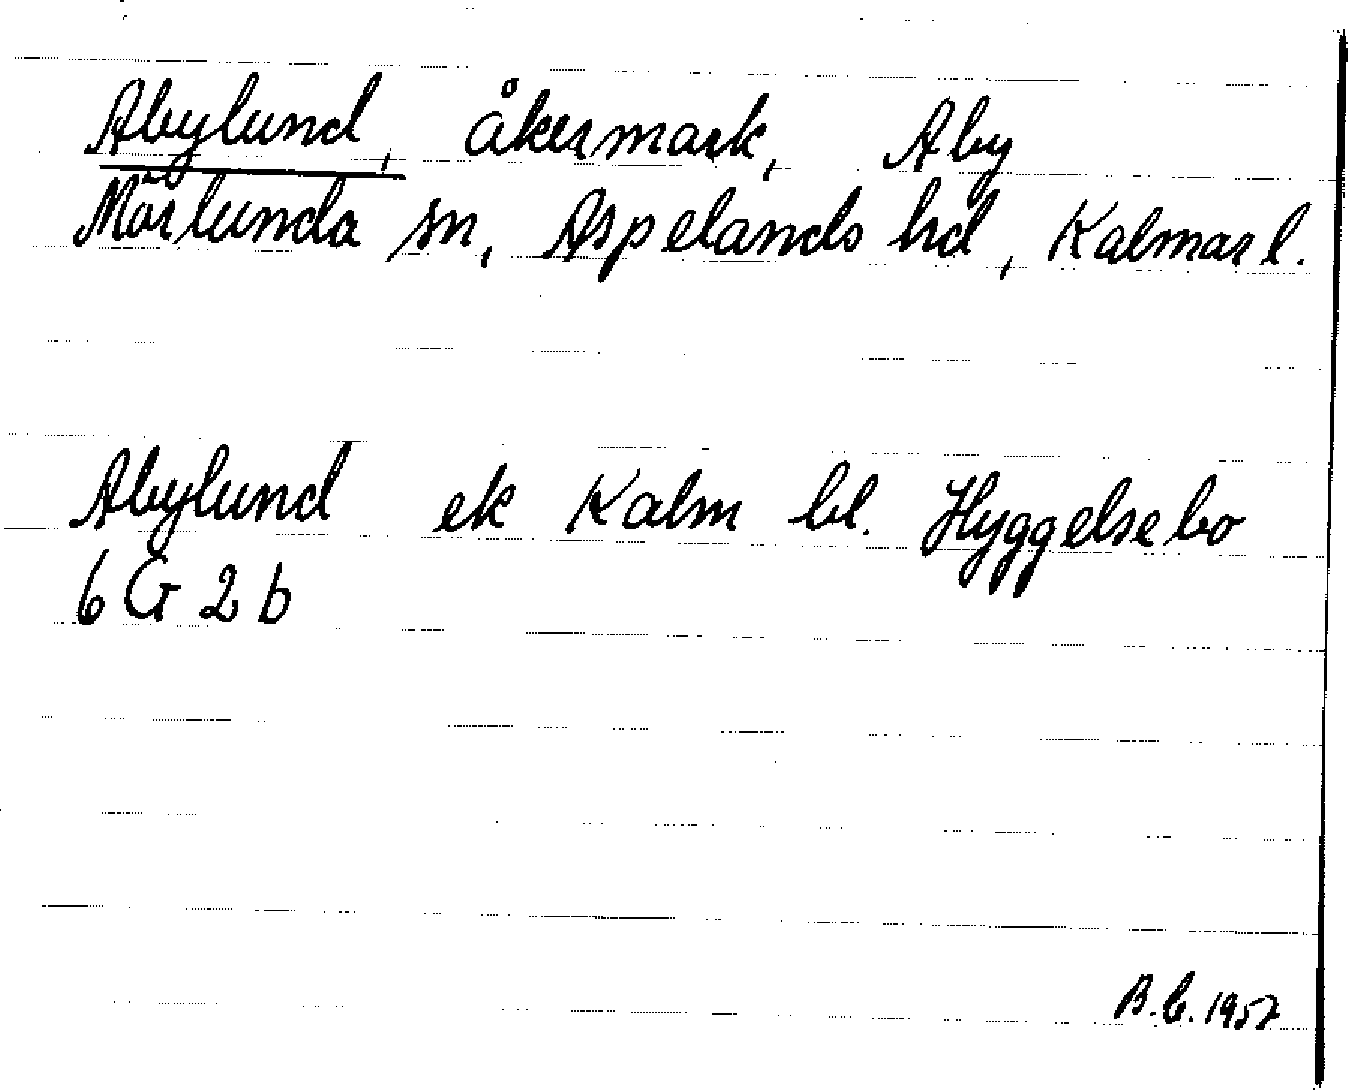 Abylund, åkermark, Aby
Mörlunda sn, Aspelands hd, Kalmar l.
Abylund ek Kalm bl. Hyggelsebo
6 G 2 b
B.C. 1957